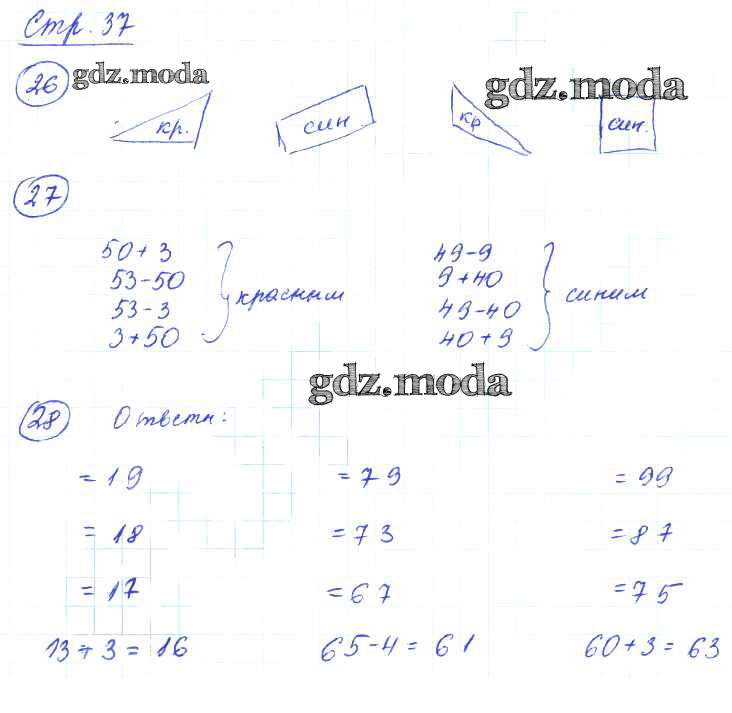 Стр. 37
26 gdz.moda gdz.moda
кр. син кр син.
27
50+3 49-9
53-50 9+40
красным синим
53-3 49-40
3+50 40+9
gdz.moda
28 Ответы:
=19 =79 =99
=18 =73 =87
=17 =67 =75
13+3=16 65-4=61 60+3=63